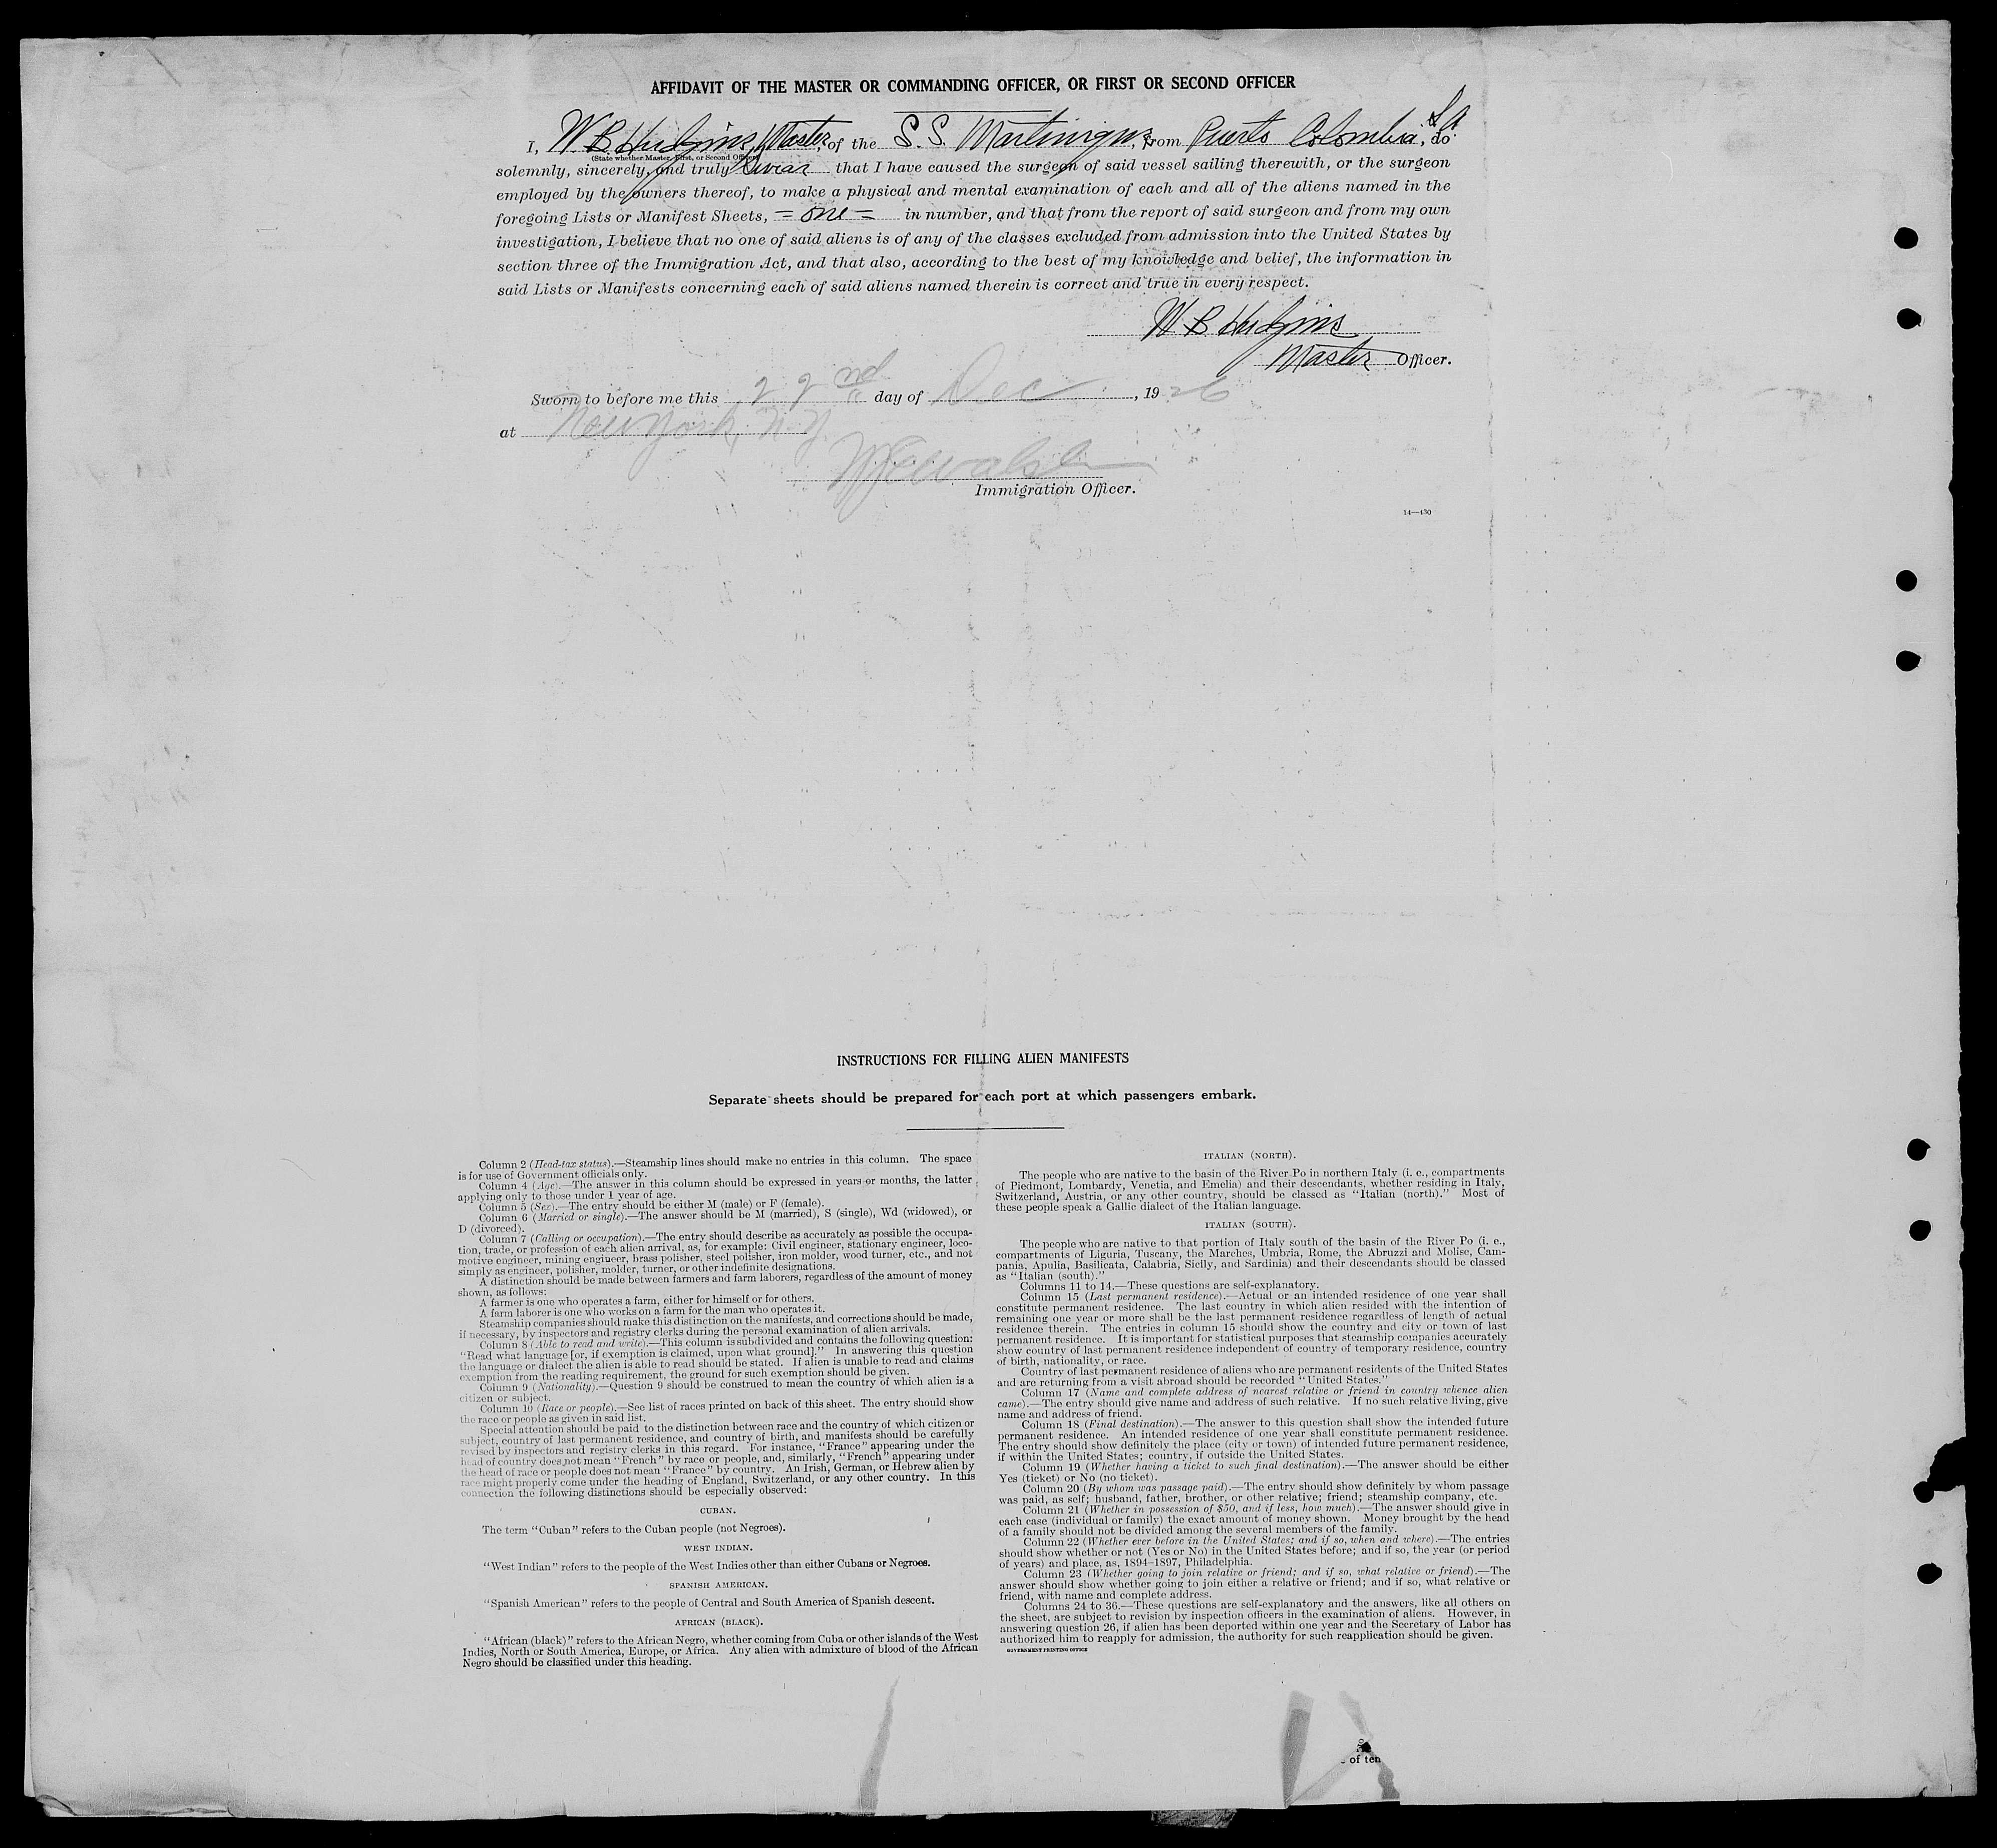 AFFIDAVIT OF THE MASTER OR COMMANDING OFFICER, OR FIRST OR SECOND OFFICER
I, W. B. Hudgins, Master, of the S. S. Martinique, from Puerto Colombia, S A do
(State whether Master, First, or Second Officer)
solemnly, sincerely, and truly swear that I have caused the surgeon of said vessel sailing therewith, or the surgeon
employed by the owners thereof, to make a physical and mental examination of each and all of the aliens named in the
foregoing Lists or Manifest Sheets, = one = in number, and that from the report of said surgeon and from my own
investigation, I believe that no one of said aliens is of any of the classes excluded from admission into the United States by
section three of the Immigration Act, and that also, according to the best of my knowledge and belief, the information in
said Lists or Manifests concerning each of said aliens named therein is correct and true in every respect.
W B Hudgins
Master Officer.
Sworn to before me this 22nd day of Dec, 1926
at New York, N.Y.
Walsh
Immigration Officer.
14—430
INSTRUCTIONS FOR FILLING ALIEN MANIFESTS
Separate sheets should be prepared for each port at which passengers embark.
Column 2 (Head-tax status).—Steamship lines should make no entries in this column. The space
is for use of Government officials only.
Column 4 (Age).—The answer in this column should be expressed in years or months, the latter
applying only to those under 1 year of age.
Column 5 (Sex).—The entry should be either M (male) or F (female).
Column 6 (Married or single).—The answer should be M (married), S (single), Wd (widowed), or
D (divorced).
Column 7 (Calling or occupation).—The entry should describe as accurately as possible the occupa-
tion, trade, or profession of each alien arrival, as, for example: Civil engineer, stationary engineer, loco-
motive engineer, mining engineer, brass polisher, steel polisher, iron molder, wood turner, etc., and not
simply as engineer, polisher, molder, turner, or other indefinite designations.
A distinction should be made between farmers and farm laborers, regardless of the amount of money
shown, as follows:
A farmer is one who operates a farm, either for himself or for others.
A farm laborer is one who works on a farm for the man who operates it.
Steamship companies should make this distinction on the manifests, and corrections should be made,
if necessary, by inspectors and registry clerks during the personal examination of alien arrivals.
Column 8 (Able to read and write).—This column is subdivided and contains the following question:
"Read what language [or, if exemption is claimed, upon what ground]." In answering this question
the language or dialect the alien is able to read should be stated. If alien is unable to read and claims
exemption from the reading requirement, the ground for such exemption should be given.
Column 9 (Nationality).—Question 9 should be construed to mean the country of which alien is a
citizen or subject.
Column 10 (Race or people).—See list of races printed on back of this sheet. The entry should show
the race or people as given in said list.
Special attention should be paid to the distinction between race and the country of which citizen or
subject, country of last permanent residence, and country of birth, and manifests should be carefully
revised by inspectors and registry clerks in this regard. For instance, "France" appearing under the
head of country does not mean "French" by race or people, and, similarly, "French" appearing under
the head of race or people does not mean "France" by country. An Irish, German, or Hebrew alien by
race might properly come under the heading of England, Switzerland, or any other country. In this
connection the following distinctions should be especially observed:
CUBAN.
The term "Cuban" refers to the Cuban people (not Negroes).
WEST INDIAN.
"West Indian" refers to the people of the West Indies other than either Cubans or Negroes.
SPANISH AMERICAN.
"Spanish American" refers to the people of Central and South America of Spanish descent.
AFRICAN (BLACK).
"African (black)" refers to the African Negro, whether coming from Cuba or other islands of the West
Indies, North or South America, Europe, or Africa. Any alien with admixture of blood of the African
Negro should be classified under this heading.
ITALIAN (NORTH).
The people who are native to the basin of the River Po in northern Italy (i. e., compartments
of Piedmont, Lombardy, Venetia, and Emelia) and their descendants, whether residing in Italy,
Switzerland, Austria, or any other country, should be classed as "Italian (north)." Most of
these people speak a Gallic dialect of the Italian language.
ITALIAN (SOUTH).
The people who are native to that portion of Italy south of the basin of the River Po (i. e.,
compartments of Liguria, Tuscany, the Marches, Umbria, Rome, the Abruzzi and Molise, Cam-
pania, Apulia, Basilicata, Calabria, Sicily, and Sardinia) and their descendants should be classed
as "Italian (south)."
Columns 11 to 14.—These questions are self-explanatory.
Column 15 (Last permanent residence).—Actual or an intended residence of one year shall
constitute permanent residence. The last country in which alien resided with the intention of
remaining one year or more shall be the last permanent residence regardless of length of actual
residence therein. The entries in column 15 should show the country and city or town of last
permanent residence. It is important for statistical purposes that steamship companies accurately
show country of last permanent residence independent of country of temporary residence, country
of birth, nationality, or race.
Country of last permanent residence of aliens who are permanent residents of the United States
and are returning from a visit abroad should be recorded "United States."
Column 17 (Name and complete address of nearest relative or friend in country whence alien
came).—The entry should give name and address of such relative. If no such relative living, give
name and address of friend.
Column 18 (Final destination).—The answer to this question shall show the intended future
permanent residence. An intended residence of one year shall constitute permanent residence.
The entry should show definitely the place (city or town) of intended future permanent residence,
if within the United States; country, if outside the United States.
Column 19 (Whether having a ticket to such final destination).—The answer should be either
Yes (ticket) or No (no ticket).
Column 20 (By whom was passage paid).—The entry should show definitely by whom passage
was paid, as self; husband, father, brother, or other relative; friend; steamship company, etc.
Column 21 (Whether in possession of $50, and if less, how much).—The answer should give in
each case (individual or family) the exact amount of money shown. Money brought by the head
of a family should not be divided among the several members of the family.
Column 22 (Whether ever before in the United States; and if so, when and where).—The entries
should show whether or not (Yes or No) in the United States before; and if so, the year (or period
of years) and place, as, 1894–1897, Philadelphia.
Column 23 (Whether going to join relative or friend; and if so, what relative or friend).—The
answer should show whether going to join either a relative or friend; and if so, what relative or
friend, with name and complete address.
Columns 24 to 36.—These questions are self-explanatory and the answers, like all others on
the sheet, are subject to revision by inspection officers in the examination of aliens. However, in
answering question 26, if alien has been deported within one year and the Secretary of Labor has
authorized him to reapply for admission, the authority for such reapplication should be given.
GOVERNMENT PRINTING OFFICE
of ten